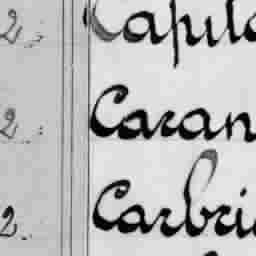 2. Capita
2. Caran
2. Carbri